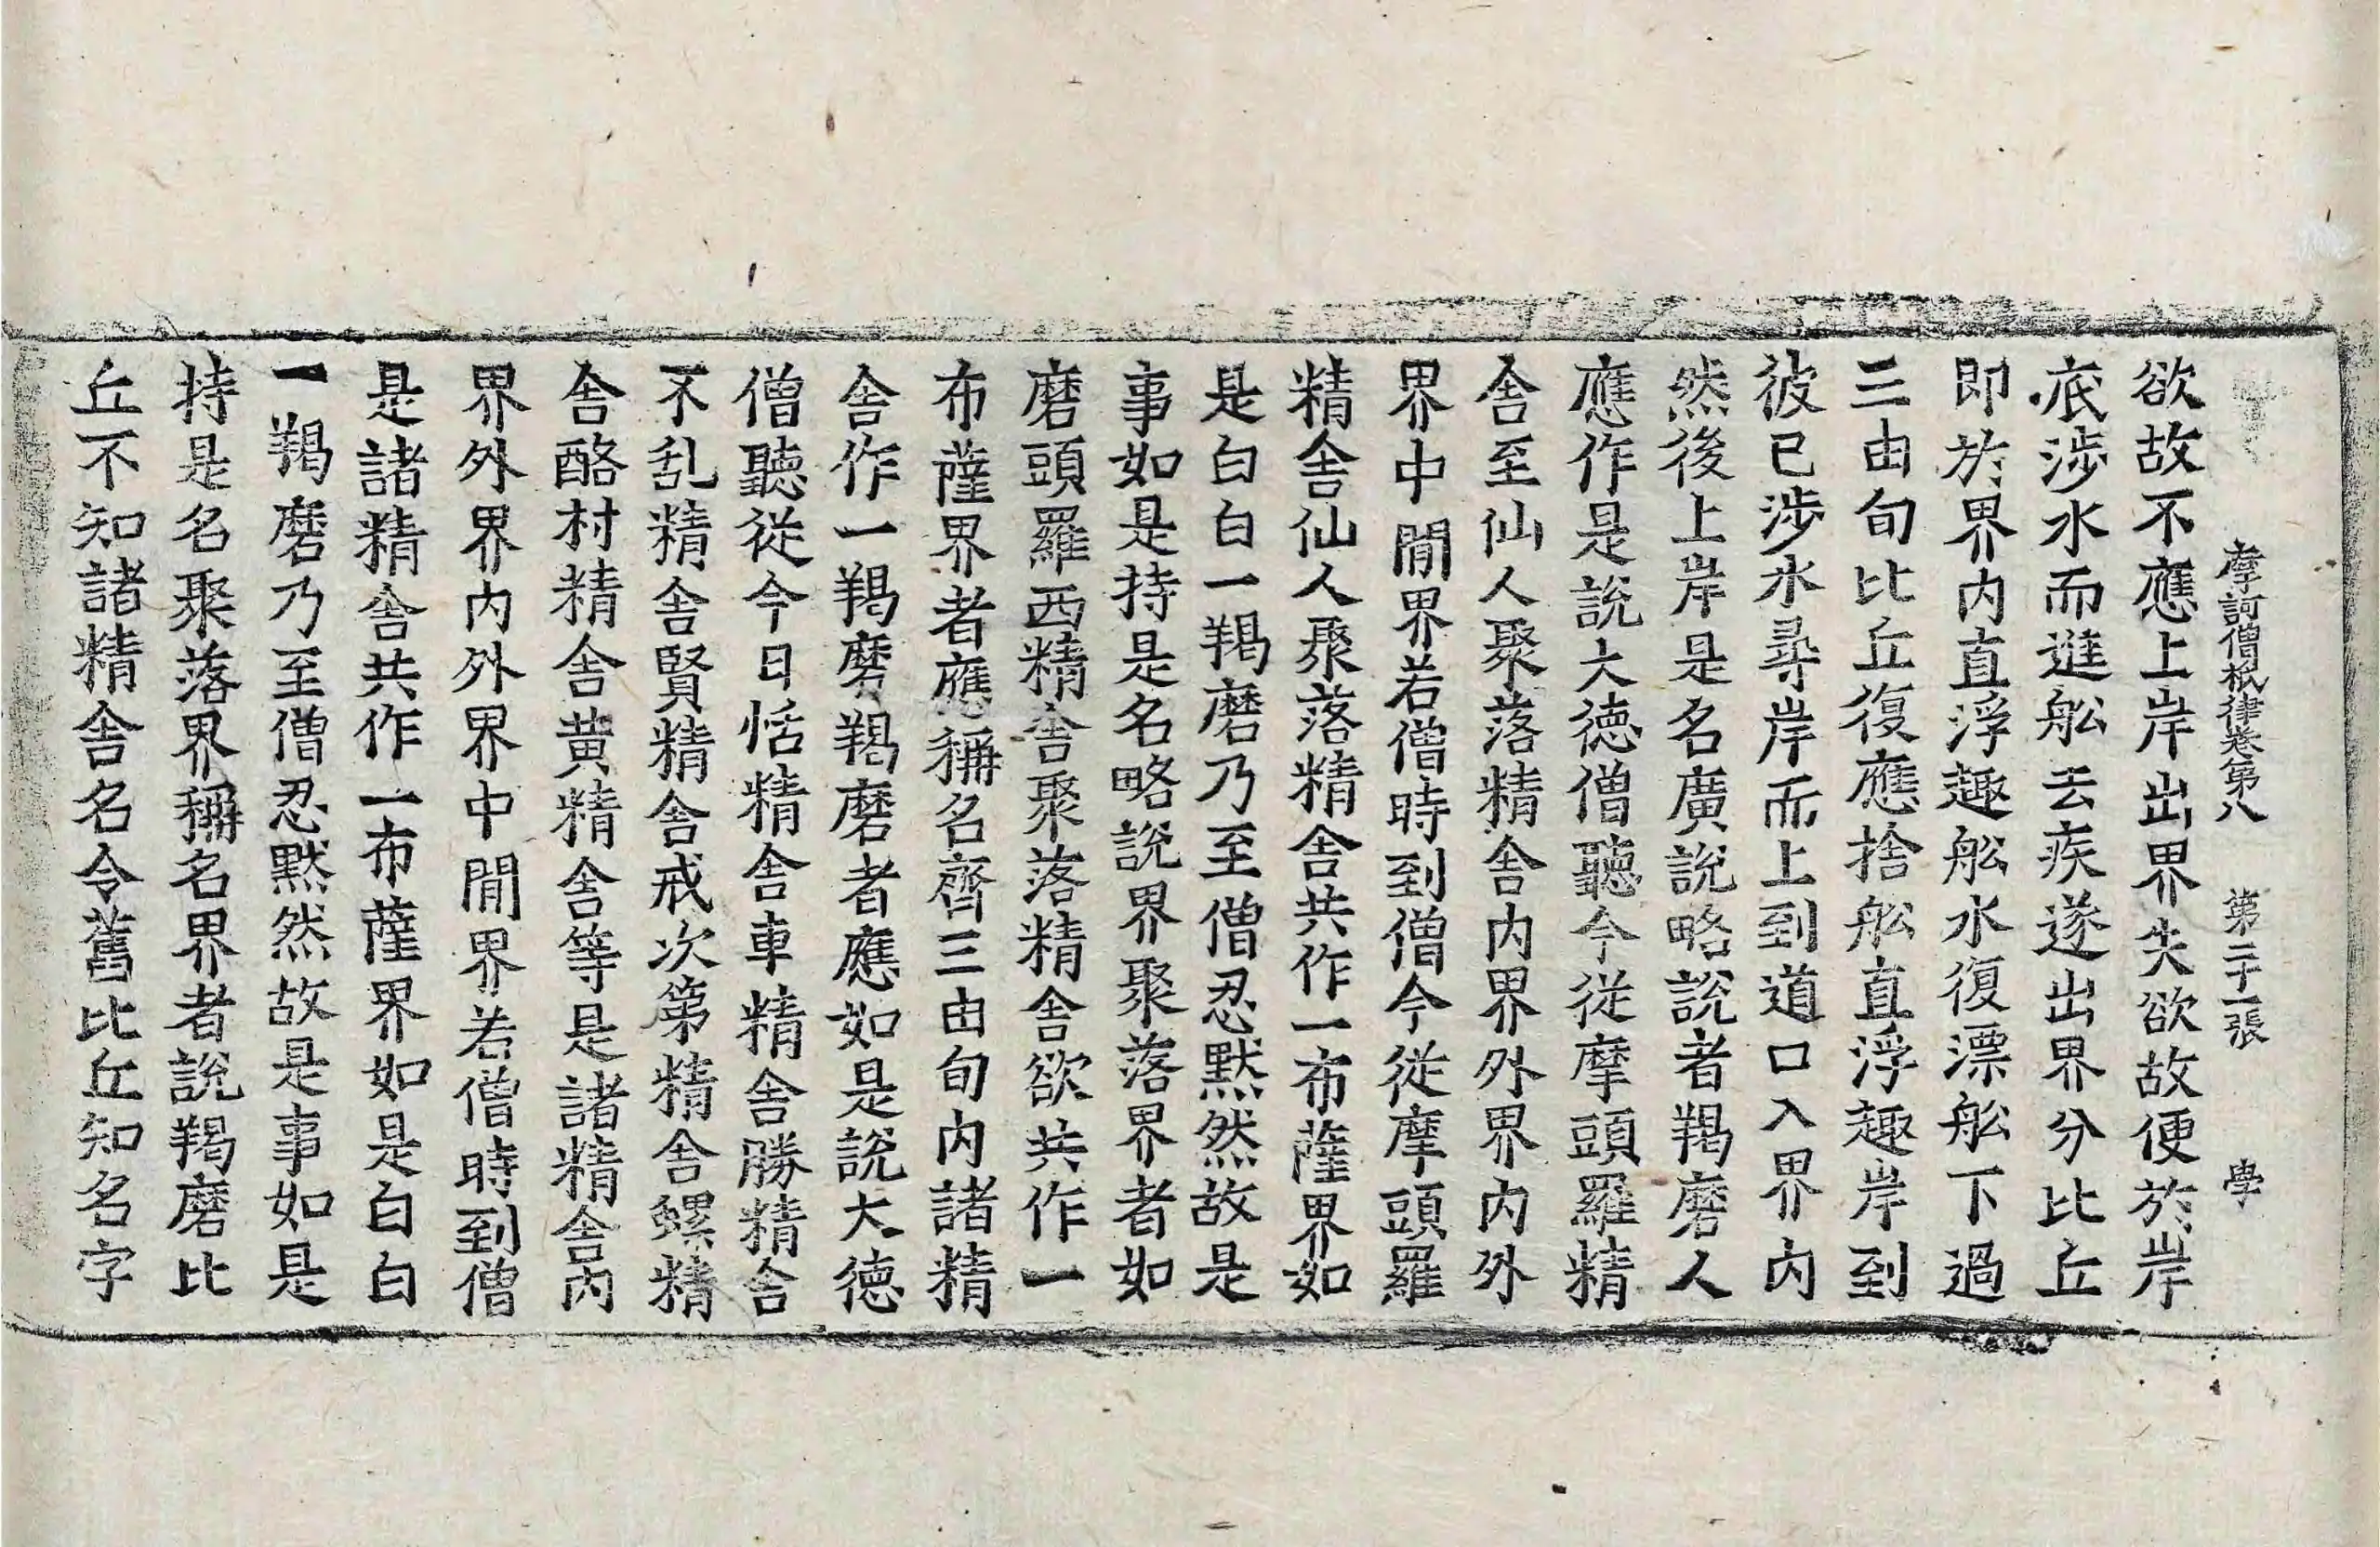 摩訶僧祇律卷第八 第二十一張 學
欲故不應上岸出界失欲故便於岸
底涉水而進舩去疾遂出界分比丘
即於界内直浮趣舩水復漂舩下過
三由旬比丘復應捨舩直浮趣岸到
彼已涉水尋岸而上到道口入界内
然後上岸是名廣說略說者羯磨人
應作是說大德僧聽今従摩頭羅精
舎至仙人聚落精舎内界外界内外
界中閒界若僧時到僧今従摩頭羅
精舎仙人聚落精舎共作一布薩界如
是白白一羯磨乃至僧忍黙然故是
事如是持是名略說界聚落界者如
磨頭羅西精舎聚落精舎欲共作一
布薩界者應稱名齊三由旬内諸精
舎作一羯磨羯磨者應如是說大德
僧聽従今日恬精舎車精舎勝精舎
不乱精舎賢精舎戒次第精舎螺精
舎酪村精舎黄精舎等是諸精舎内
界外界内外界中閒界若僧時到僧
是諸精舎共作一布薩界如是白白
一羯磨乃至僧忍黙然故是事如是
持是名聚落界稱名界者說羯磨比
丘不知諸精舎名令舊比丘知名字